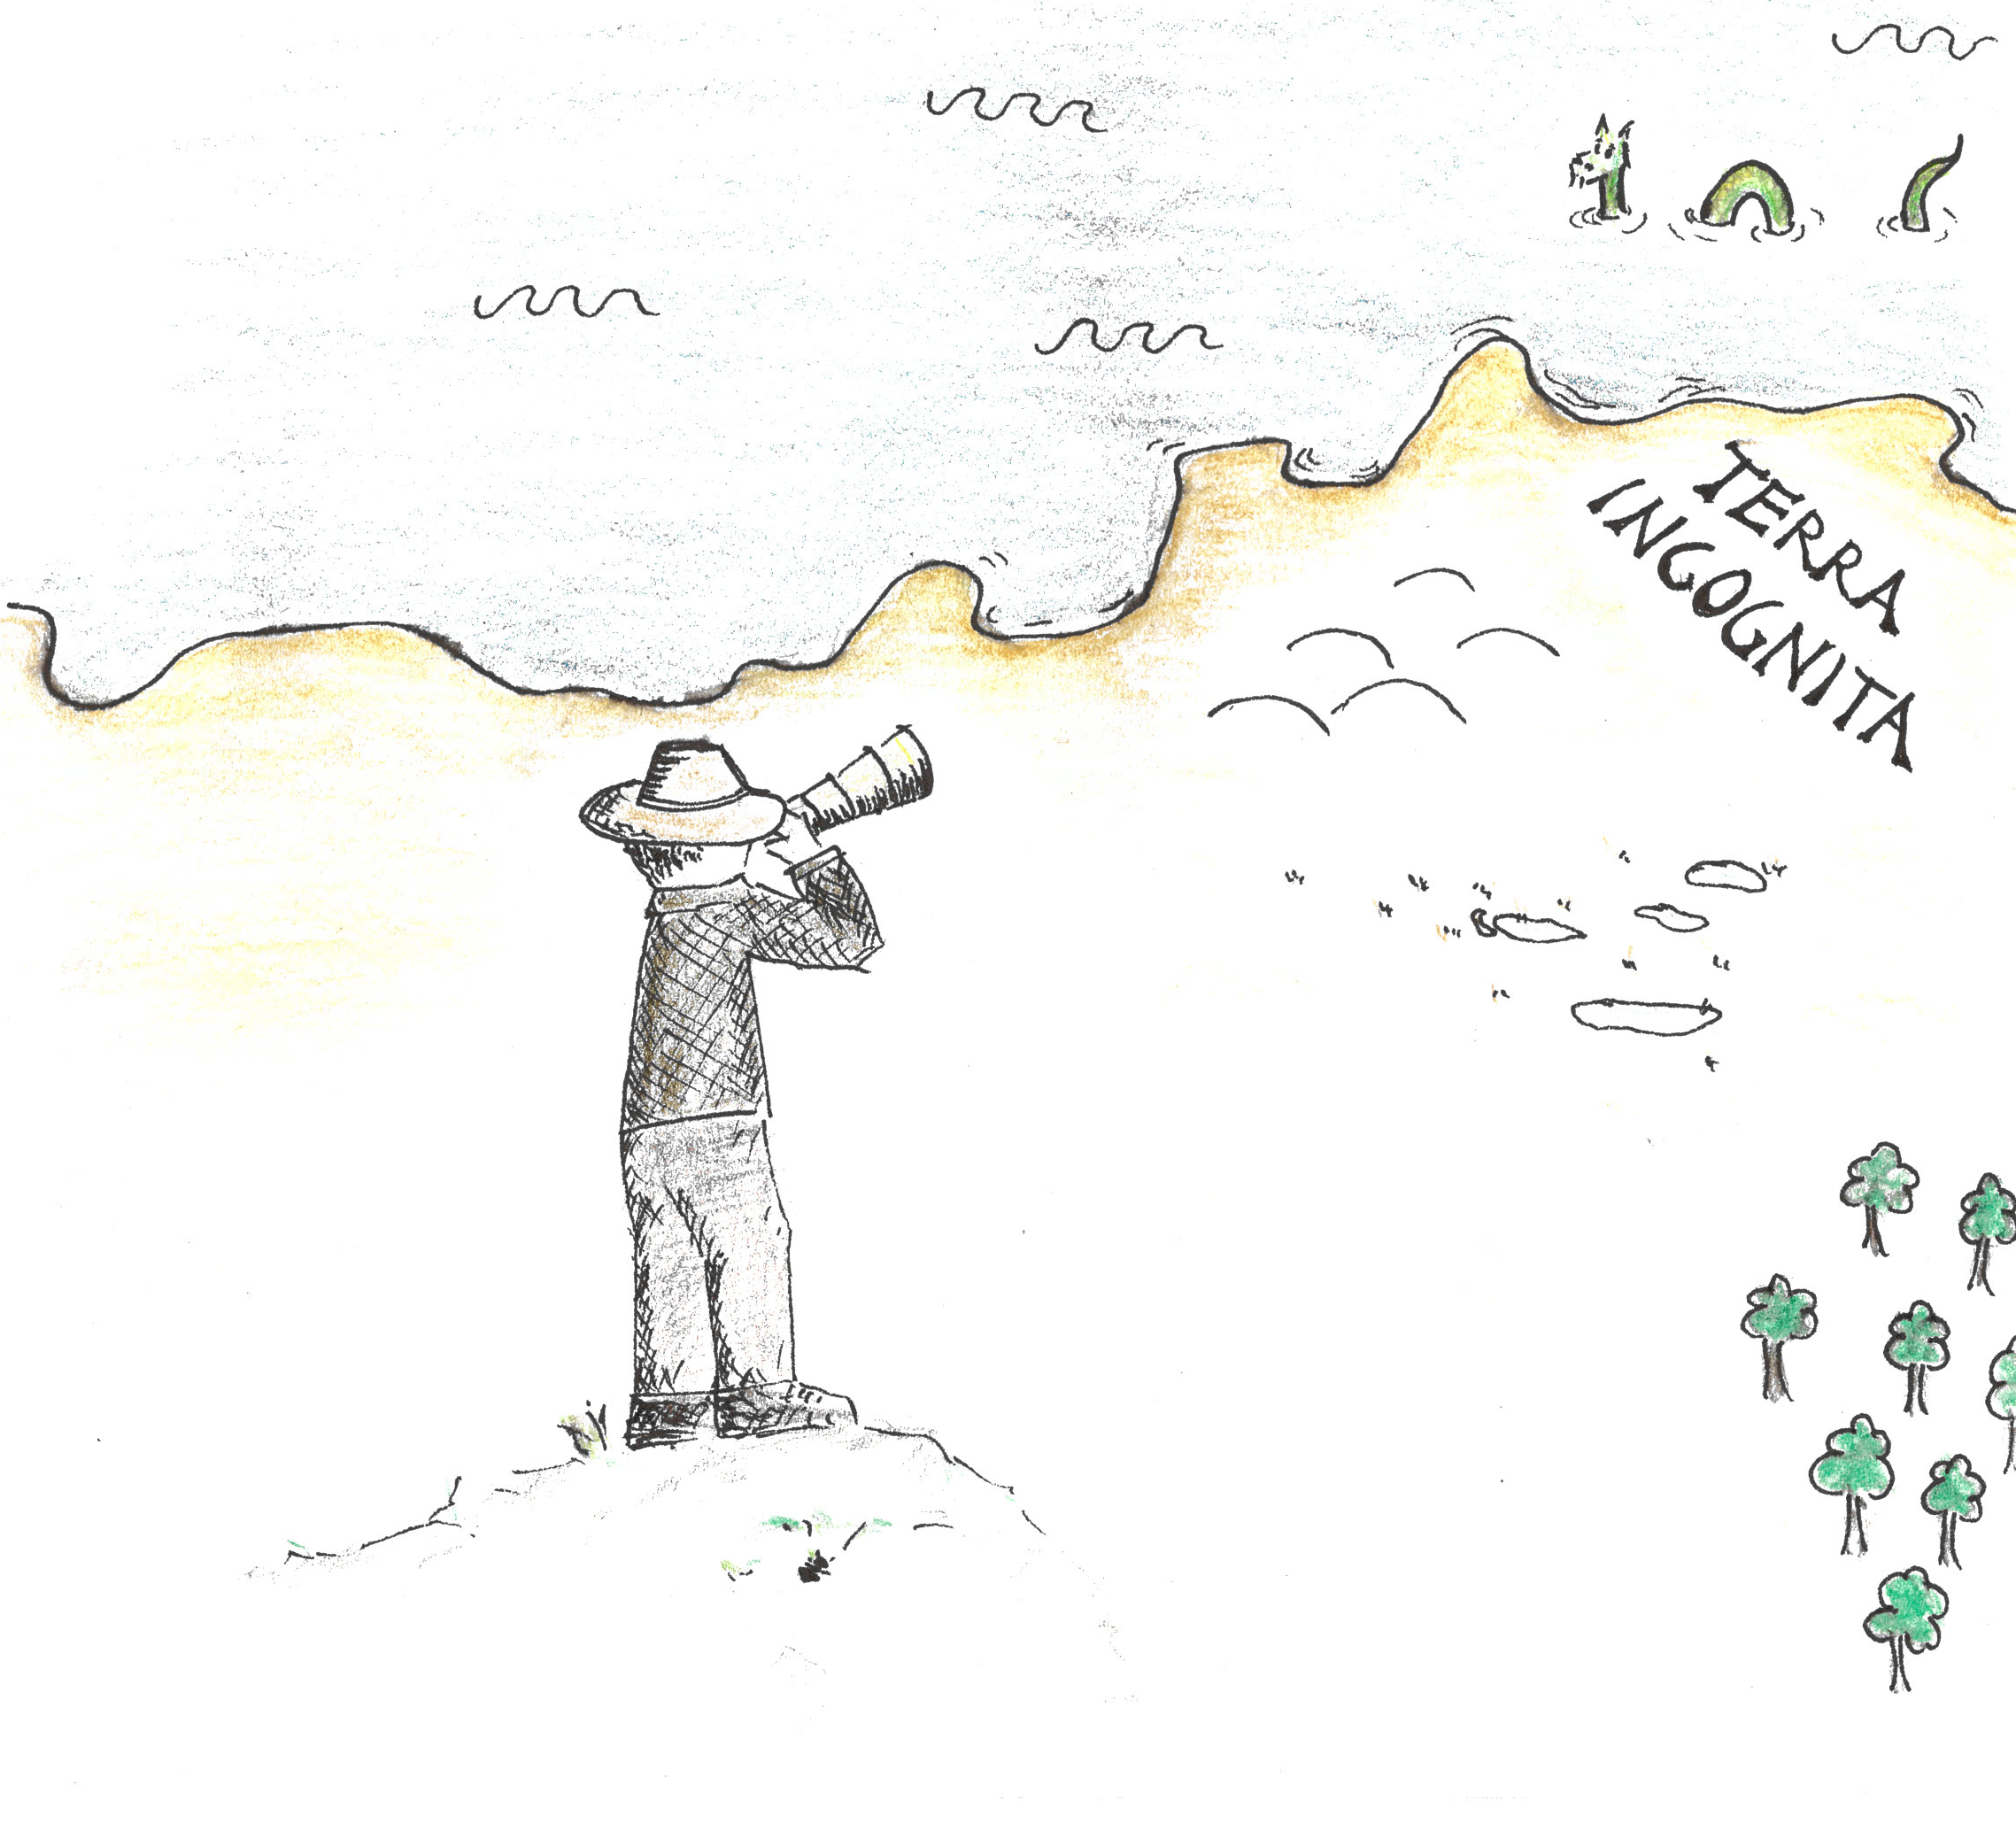 TERRA
INCOGNITA